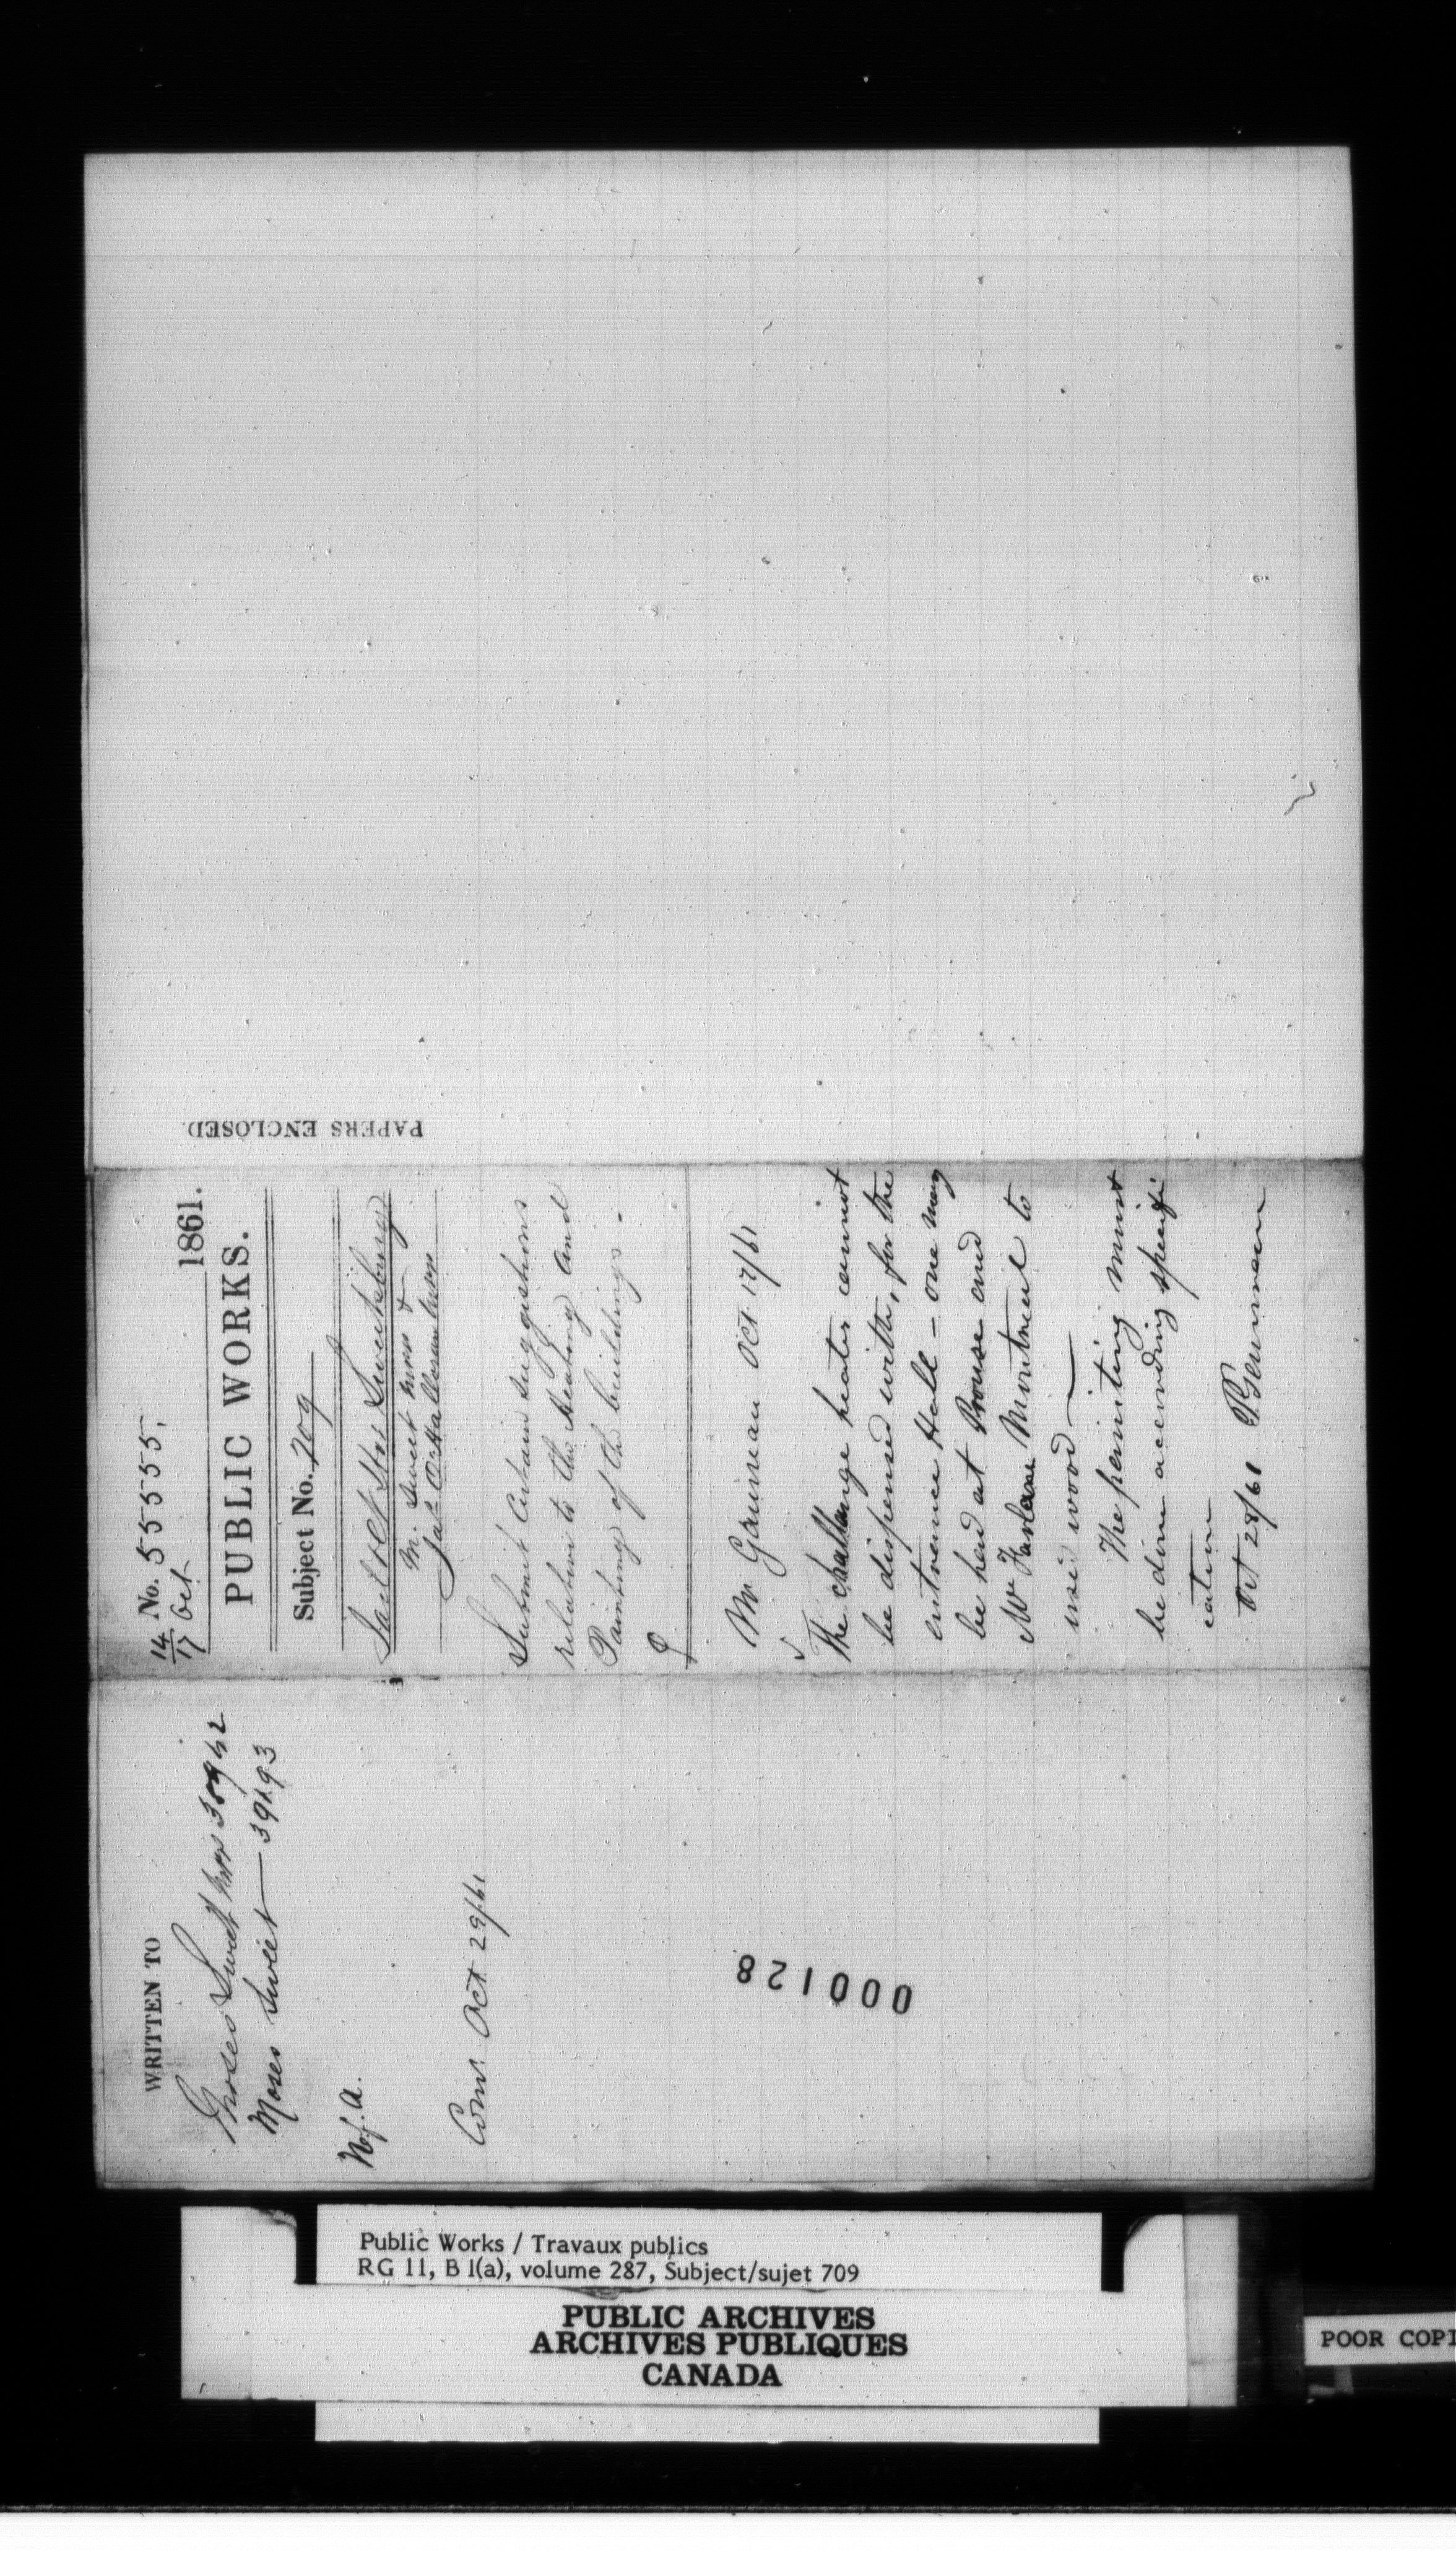 PAPERS ENCLOSED.
14/17 Oct No. 55555, 1861.
PUBLIC WORKS.
Subject No. 709
Jail & Ct Hse Sweetsburg
M. Sweet &
Jas O'Halloran
Submit certain suggestions
relative to the heating and
Painting of the buildings.
Mr Gauvreau Oct 17/61
The challenge heater cannot
be dispensed with, for the
entrance Hall - one may
be had at Prouse and
McFarlane Montreal to
use wood —
The painting must
be done according specifi
cation
Oct 28/61
WRITTEN TO
Moses Sweet 38942
Moses Sweet — 39193
Com. Oct 29/61
000128
Public Works / Travaux publics
RG 11, B 1(a), volume 287, Subject/sujet 709
PUBLIC ARCHIVES
ARCHIVES PUBLIQUES
CANADA
POOR COPI